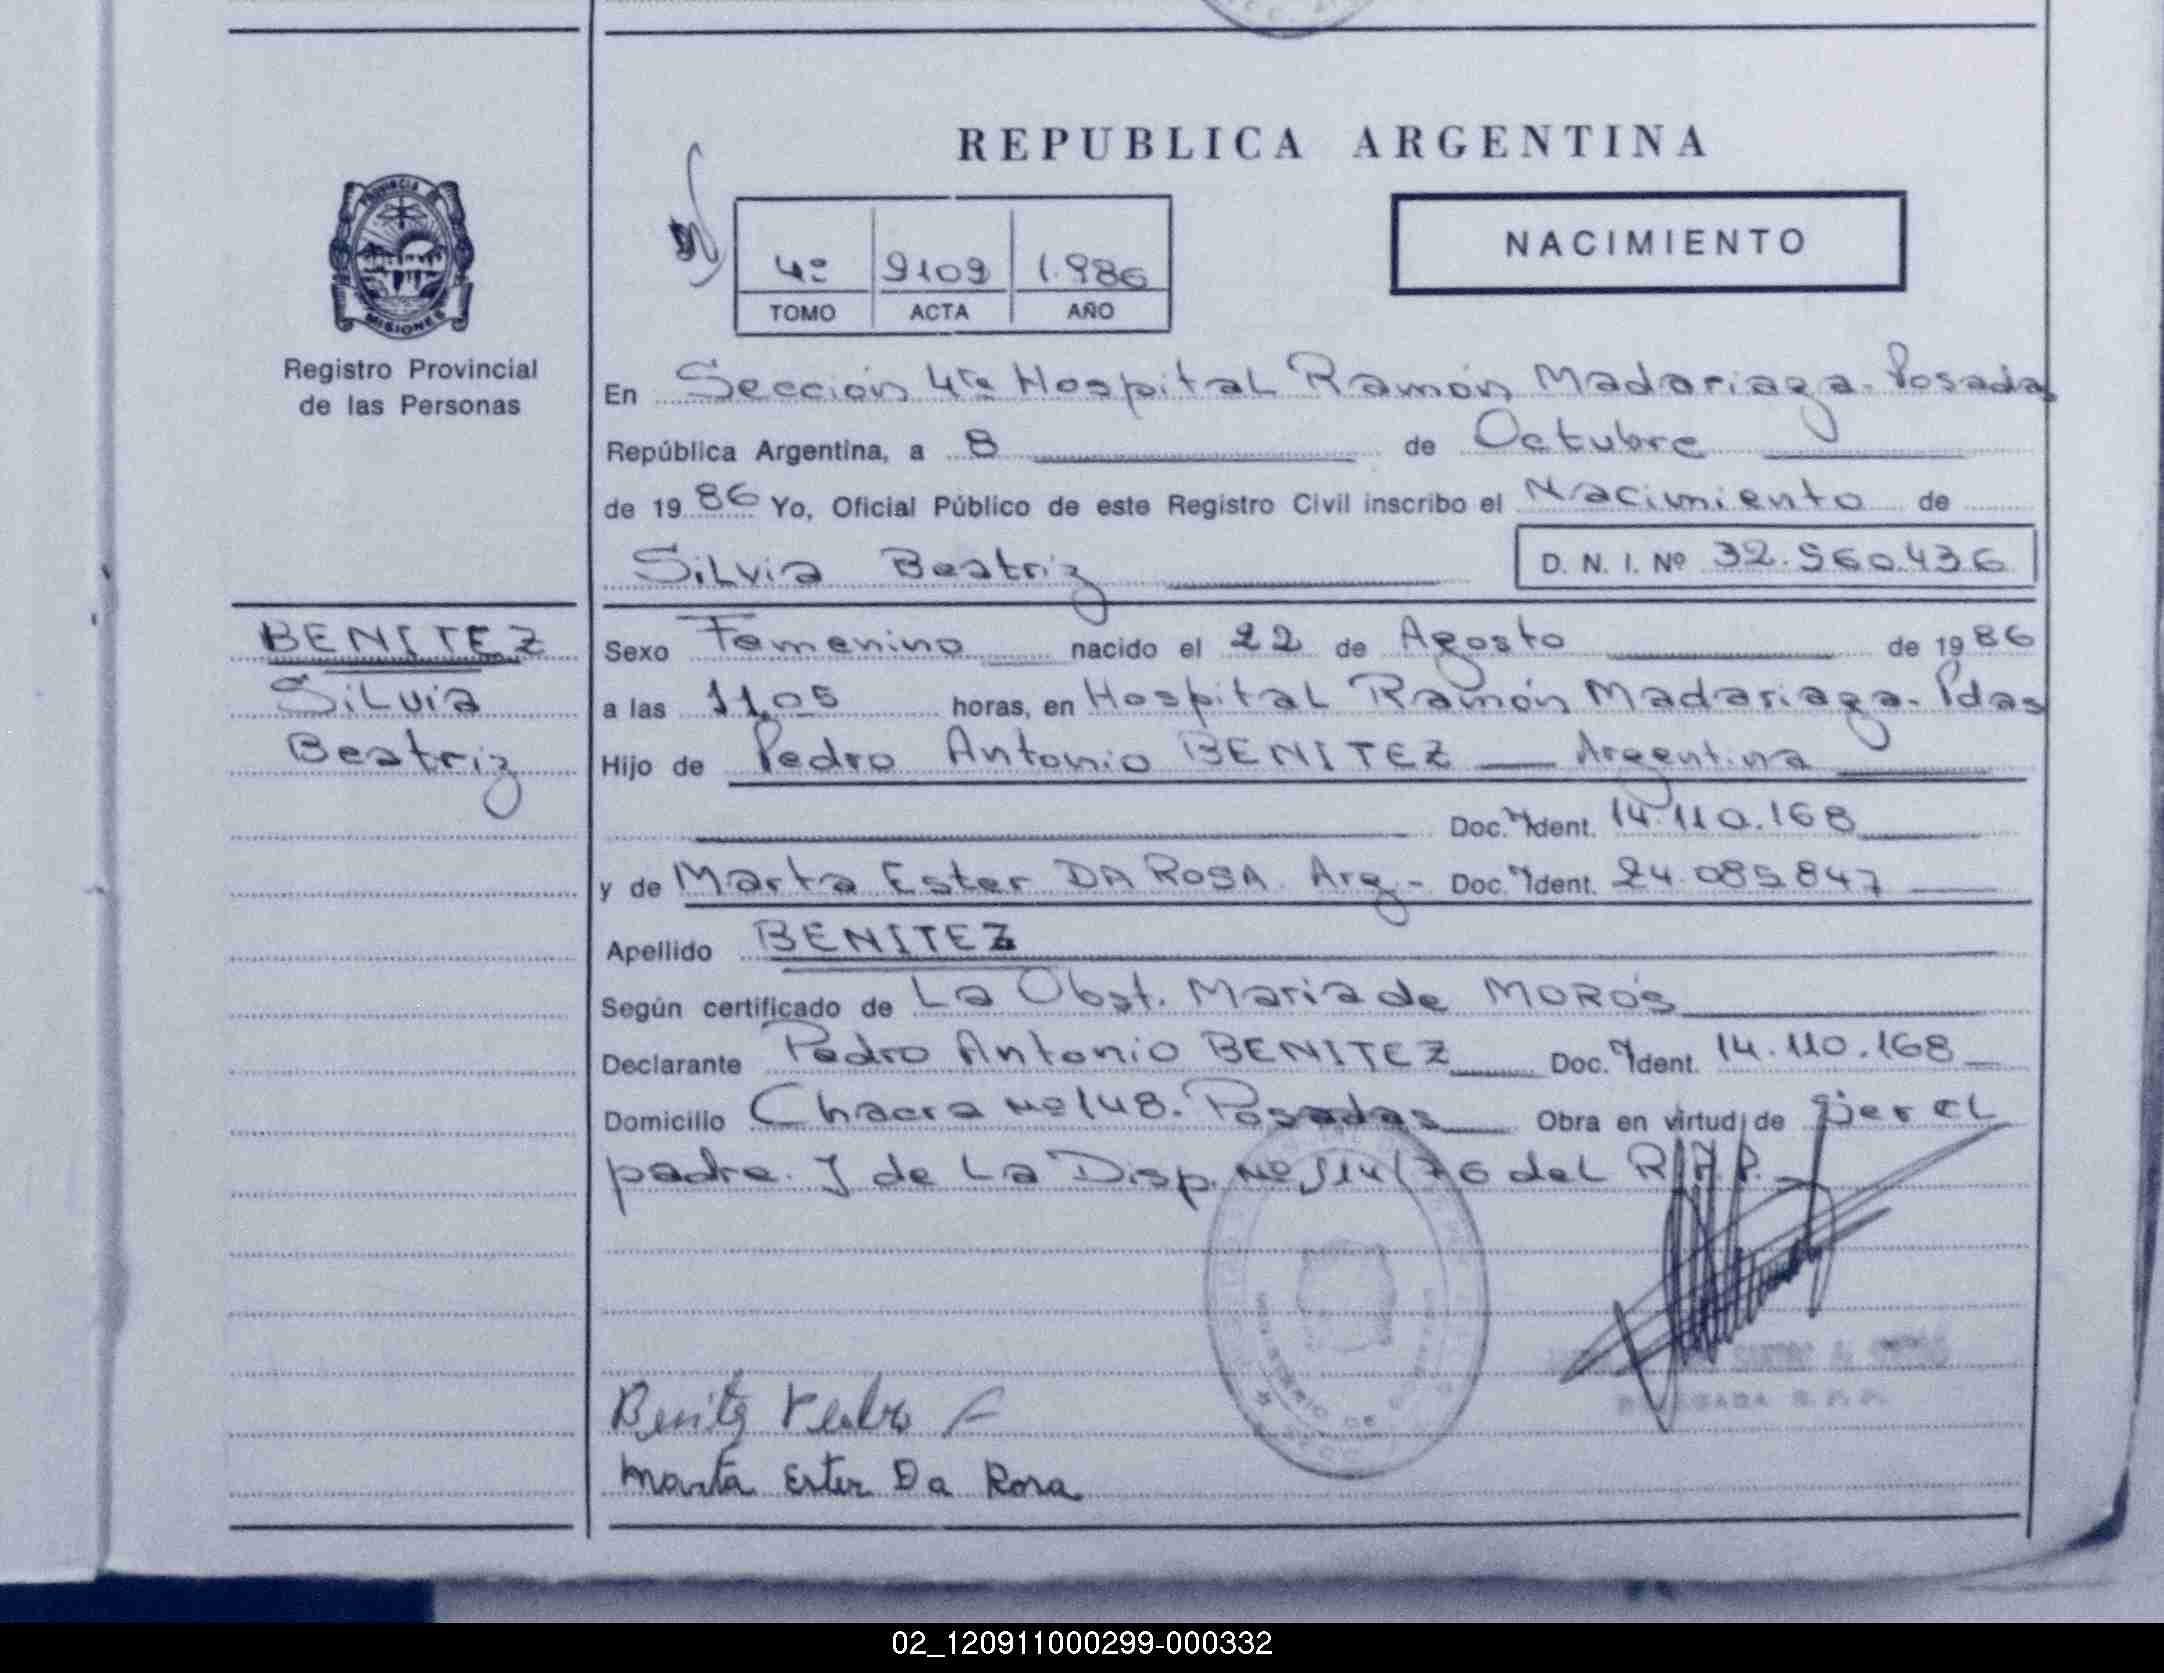 REPUBLICA ARGENTINA
PROVINCIA DE
MISIONES
Registro Provincial
de las Personas
4º 9109 1.986
TOMO ACTA AÑO
NACIMIENTO
En Sección 4ta Hospital Ramón Madariaga. Posadas
República Argentina, a 8 de Octubre
de 1986 Yo, Oficial Público de este Registro Civil inscribo el Nacimiento de
Silvia Beatriz D. N. I. Nº 32.960.436
BENITEZ
Silvia
Beatriz
Sexo Femenino nacido el 22 de Agosto de 1986
a las 11,05 horas, en Hospital Ramón Madariaga. Pdas
Hijo de Pedro Antonio BENITEZ Argentina
Doc. Ident. 14.110.168
y de Marta Ester DA ROSA Arg- Doc. Ident. 24.085.847
Apellido BENITEZ
Según certificado de La Obst. Maria de MOROS
Declarante Pedro Antonio BENITEZ Doc. Ident. 14.110.168
Domicilio Chacra Nº 148. Posadas Obra en virtud de ser el
padre. y de La Disp. Nº /76 del
MINISTERIO DE
DELEGADA
Benitez Pedro A
Marta Ester Da Rosa
02_120911000299-000332